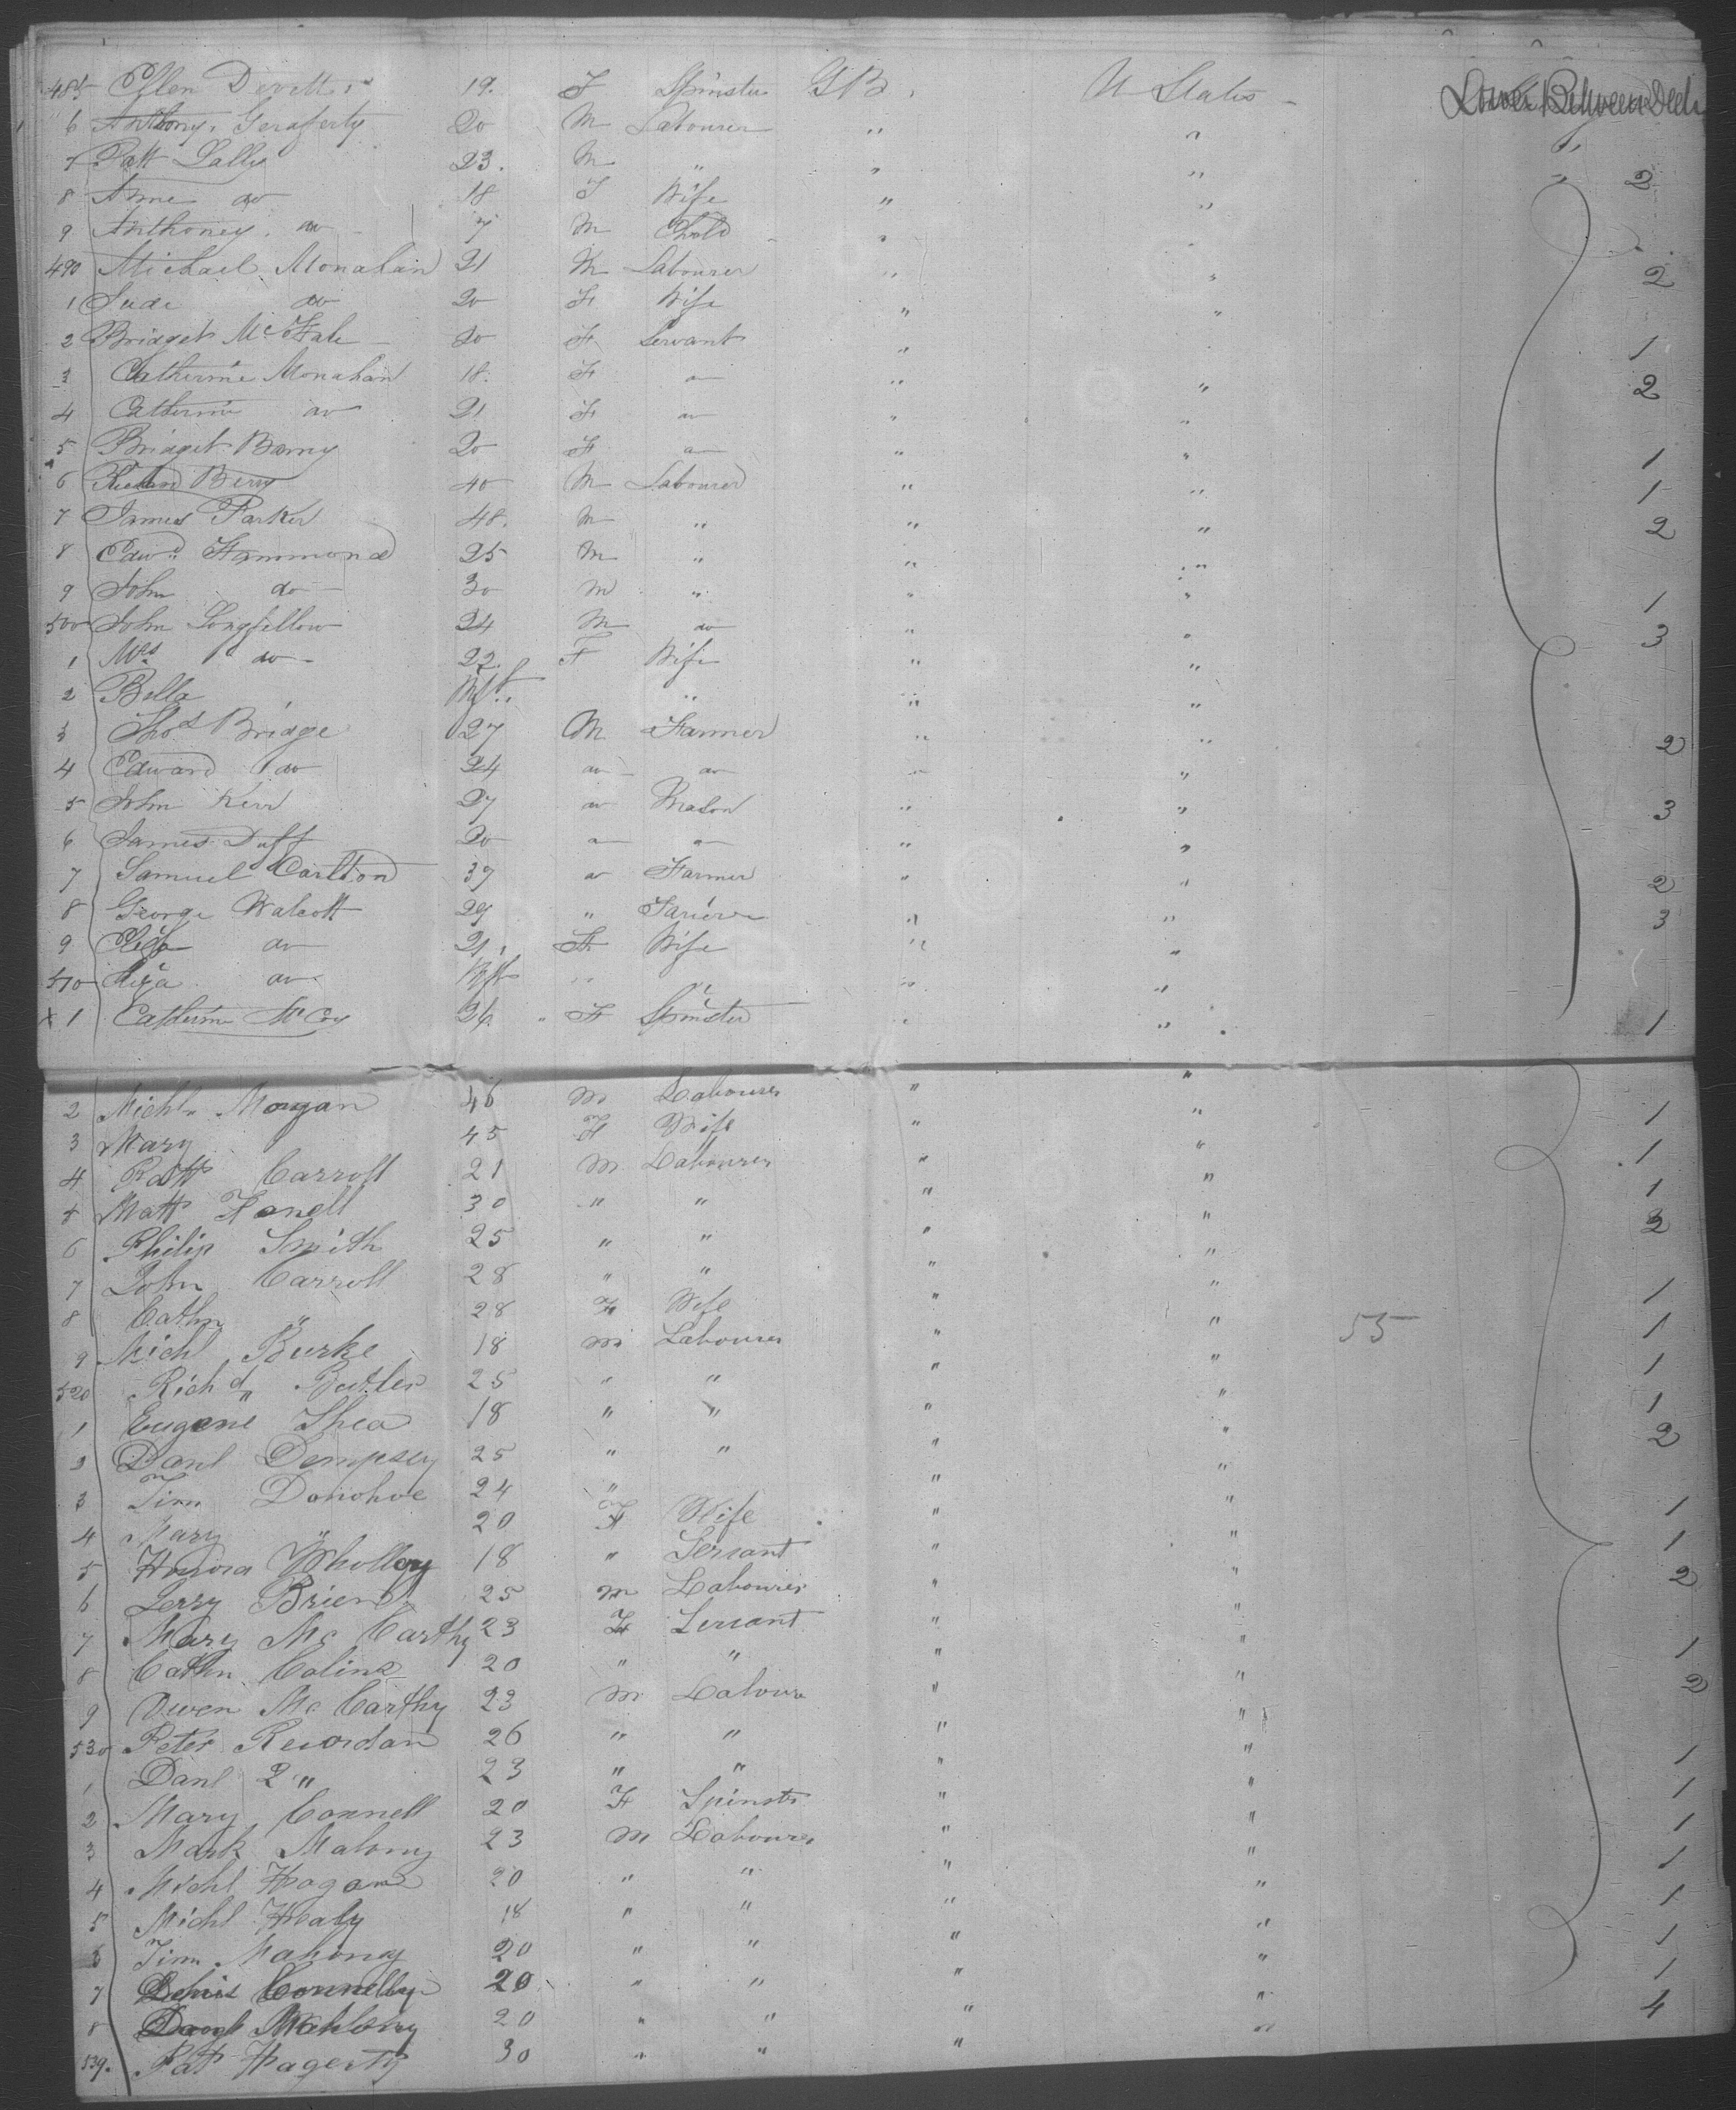 485 Ellen Devitt 19. F Spinster G B. U States Lower Between Deck
6 Anthony Geraferty 20 M Labourer " " "
7 Patt Lally 23. M " " " " 2
8 Anne do 18 F Wife " "
9 Anthoney do 7 M Child "
490 Michael Monahan 21 M Labourer " " 2
1 Jude do 20 F Wife " "
2 Bridget McFale 20 F Servant " 1
3 Catherine Monahan 18. F do " " 2
4 Catherine do 21 F do " "
5 Bridget Barny 20 F do " " 1
6 Richard Berry 40 M Labourer " " 1
7 James Parker 48. M " " " 2
8 Edwd Hammond 25 M " " "
9 John do 30 M " " " 1
500 John Longfellow 24 M do " " 3
1 Mrs do 22. F Wife " "
2 Bella Inft " " "
3 Thos Bridge 27 M Farmer " " 2
4 Edward do 24 do do " "
5 John Kerr 27 do Mason " " 3
6 James Duff 20 do do " "
7 Samuel Carlton 37 do Farmer " " 2
8 George Walcott 29 " " " 3
9 do 21, F Wife " "
510 Eliza do Inft " " " "
x 1 Catherine McCoy 26. " F Spinster " " 1
2 Michl Morgan 46 M Labourer " " 1
3 Mary 45 F Wife " " 1
4 Patt Carroll 21 M Labourer " " 1
5 Matt 30 " " " " 2
6 Philip Smith 25 " " " "
7 John Carroll 28 " " " " 1
8 Cathn " 28 F Wife " " 53 1
9 Michl Burke 18 M Labourer " " 1
520 Richd Butler 25 " " " " 1
1 Eugene Shea 18 " " " " 2
2 Danl Dempsey 25 " " " "
3 Tim Donohoe 24 " " " 1
4 Mary " 20 F Wife " " 1
5 Honora Wholley 18 " Servant " " 2
6 Jerry Brien 25 M Labourer " "
7 Mary McCarthy 23 F Servant " " 1
8 Cathn Colins 20 " " " " 2
9 Owen McCarthy 23 M Laboure " "
530 Peter Reiordan 26 " " " " 1
1 Danl " 23 " " " " 1
2 Mary Connell 20 F Spinstr " " 1
3 Mark Malony 23 M Labourer " " 1
4 Michl Hagan 20 " " " " 1
5 Michl Healy 18 " " " " 1
6 Tim Mahoney 20 " " " " 1
7 Denis Connelly 20 " " " " 4
8 Danl 20 " " " "
539. Pat Hagerty 30 " " "